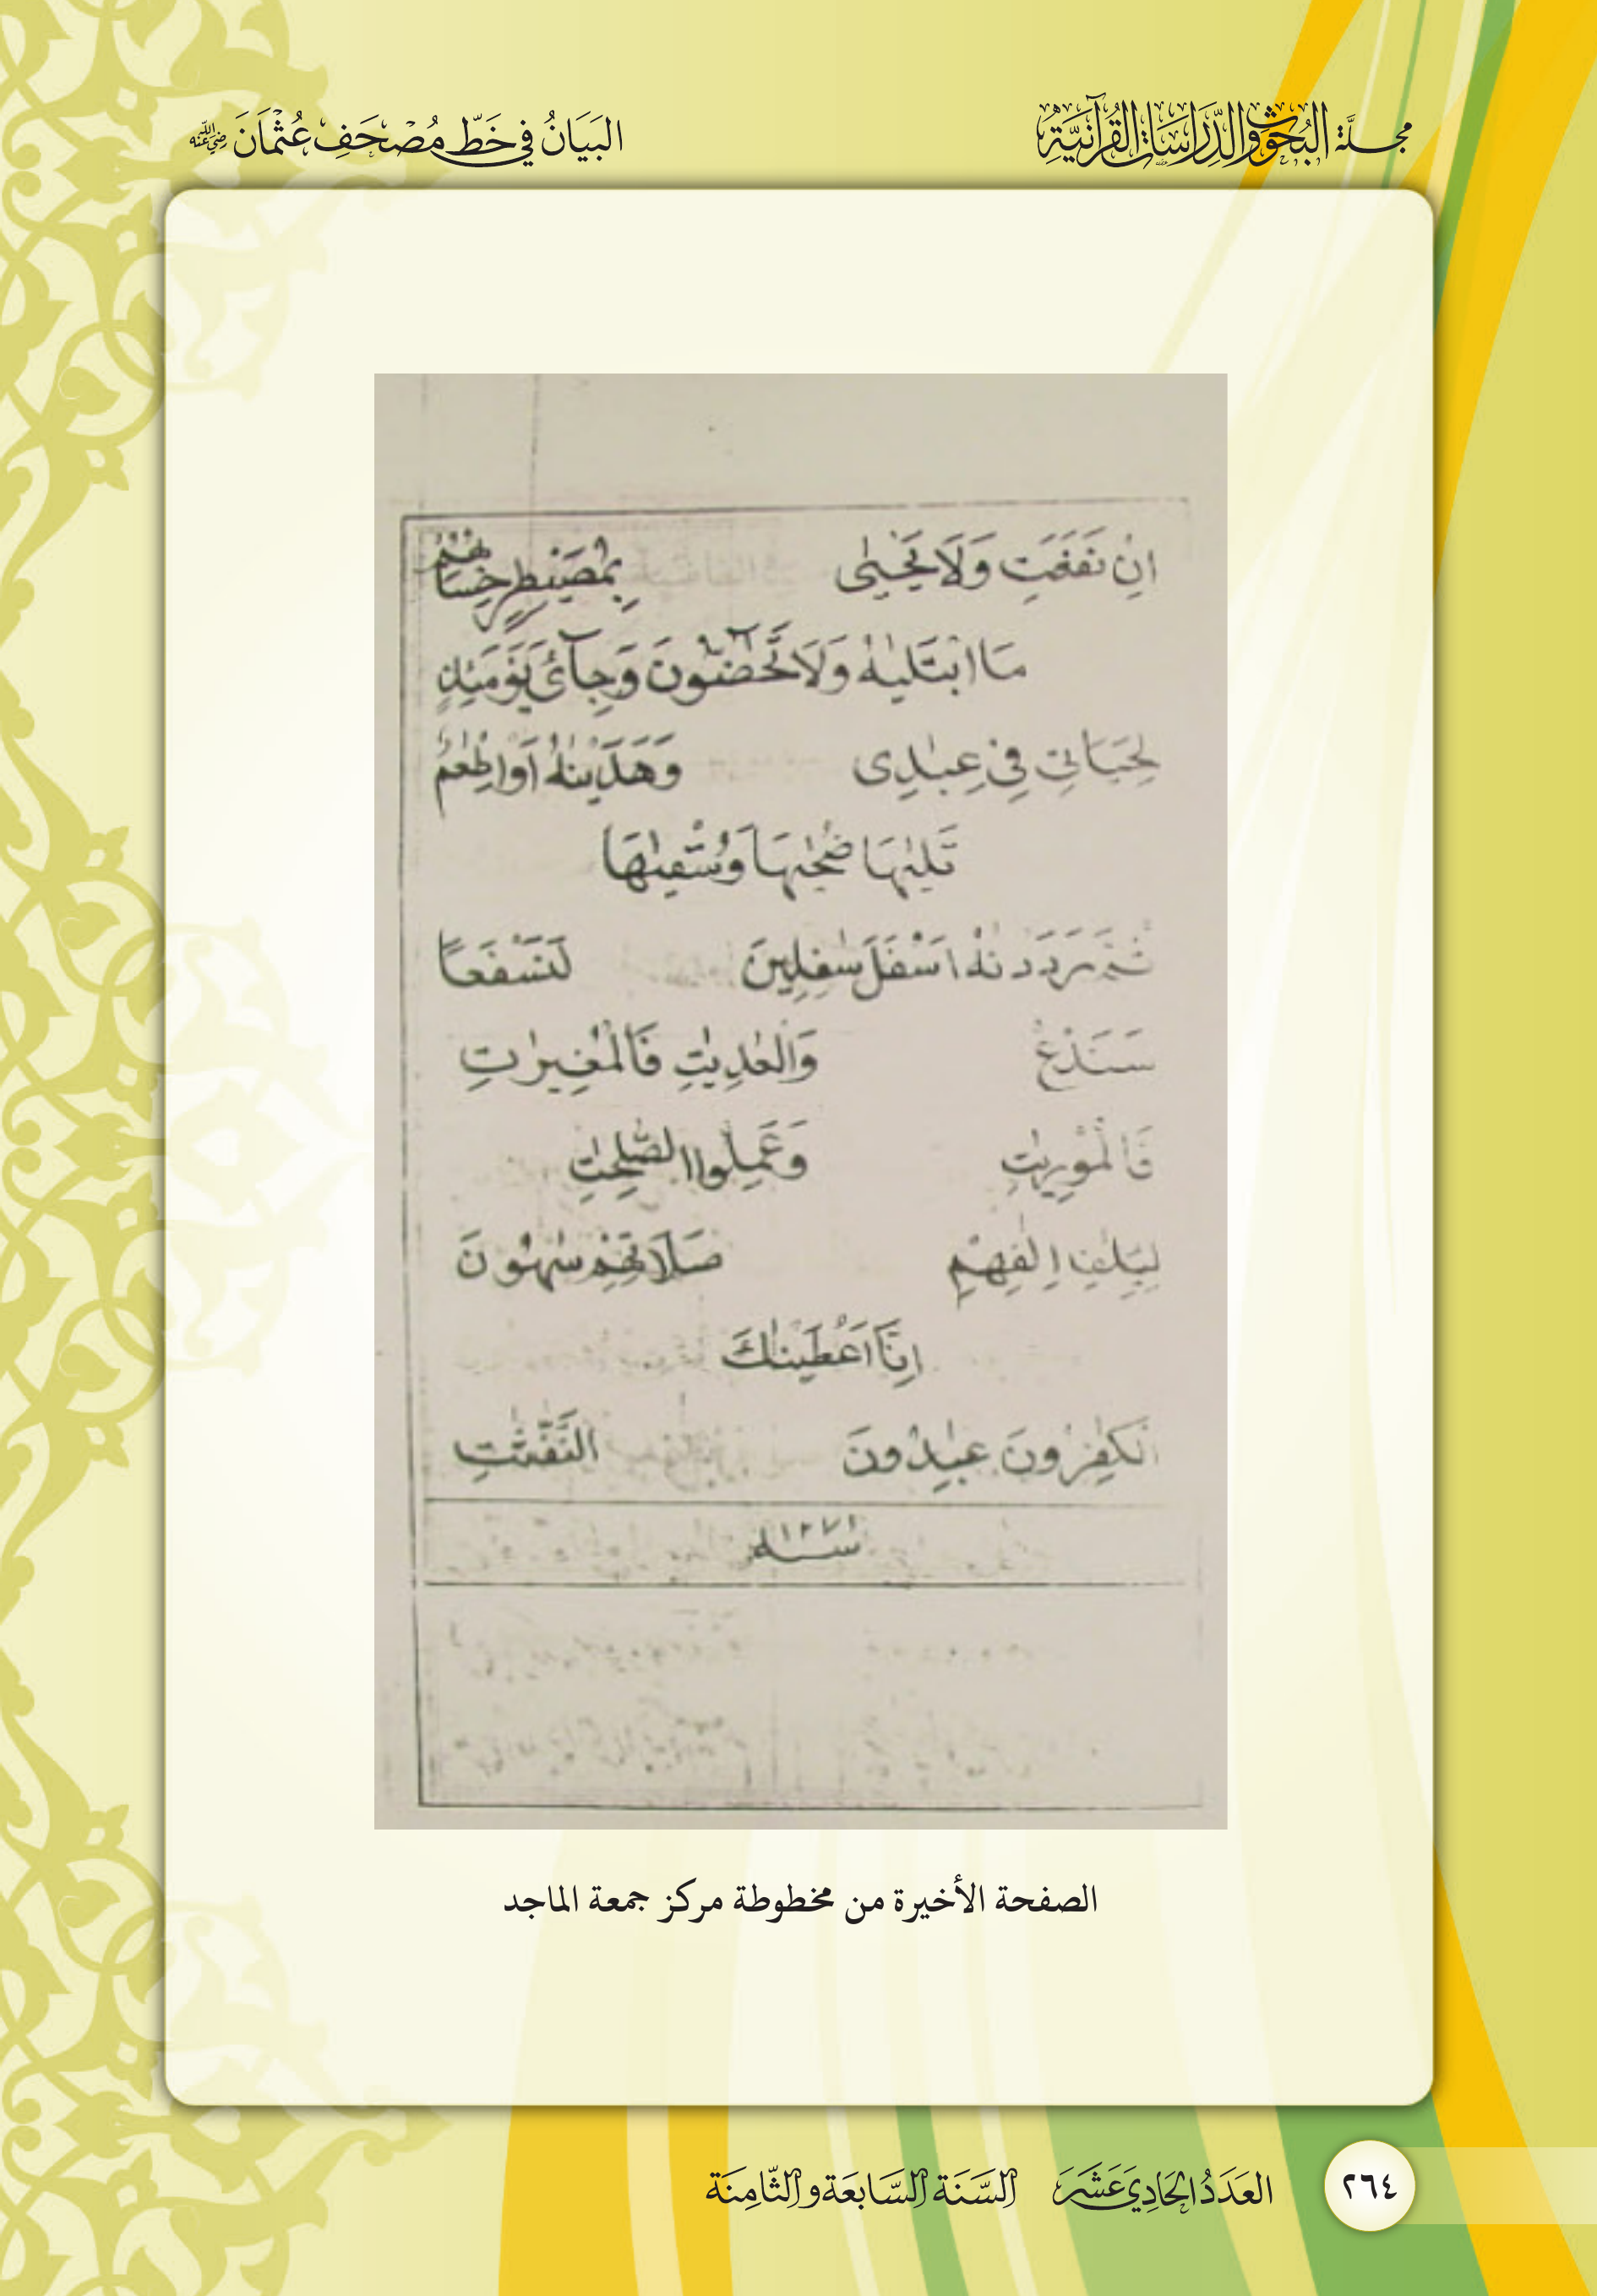 مجلة البُحُوثِ وَالدِّرَاسَاتِ القُرْآنِيَّةِ
البَيَانُ فِي خَطِّ مُصْحَفِ عُثْمَانَ رضي الله عنه
اِنْ نَفَعَتِ وَلَا يَحْيٰى بِمُصَيْطِرٍ حِسَابَهُمْ
مَا ابْتَلٰيهُ وَلَا تَحٰٓضُّونَ وَجِاىٓءَ يَوْمَئِذٍ
لِحَيَاتِى فِى عِبٰدِى وَهَدَيْنٰهُ اَوْ اِطْعٰمٌ
تَلٰيهَا ضُحٰيهَا وَسُقْيٰهَا
ثُمَّ رَدَدْنٰهُ اَسْفَلَ سٰفِلِينَ لَنَسْفَعًا
سَنَدْعُ وَالْعٰدِيٰتِ فَالْمُغِيرٰتِ
فَالْمُورِيٰتِ وَعَمِلُوا الصّٰلِحٰتِ
لِاِيلٰفِ اٖلٰفِهِمْ صَلَاتِهِمْ سٰهُونَ
اِنَّا اَعْطَيْنٰكَ
الْكٰفِرُونَ عٰبِدُونَ النَّفّٰثٰتِ
سنه ١٢٧١
الصفحة الأخيرة من مخطوطة مركز جمعة الماجد
٢٦٤ العَدَدُ الحَادِيَ عَشَرَ السَّنَة السَّابِعَة والثَّامِنَة